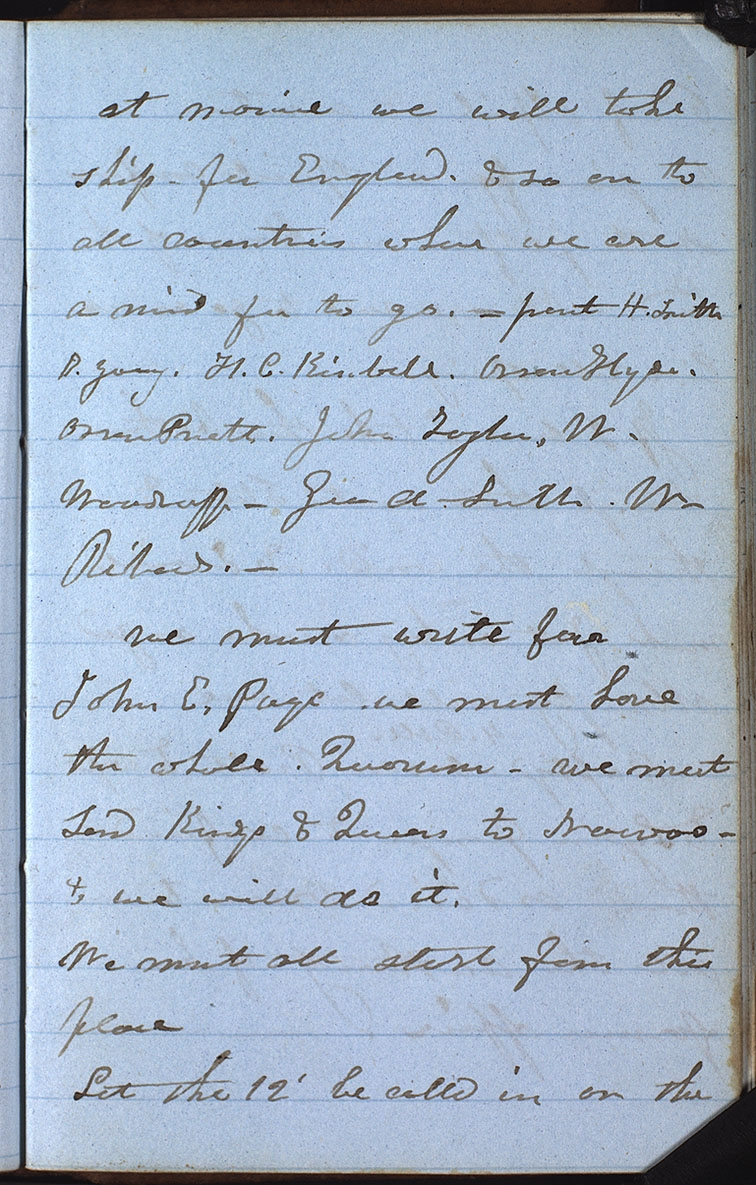 at maine we will take
ship for England. & so on to
all countries where we are
a mind for to go. — prent H. Smith
B. Young. H. C. Kimball. Orson Hyde.
Orson Pratt. John Taylor, W.
Woodruff — Geo A. Smith. W
Richards. —
we must write for
John E. Page we must have
the whole. Quorum - we must
send Kings & Queens to Nauvoo -
& we will do it.
We must all start from this
place
Let the 12 be called in on the